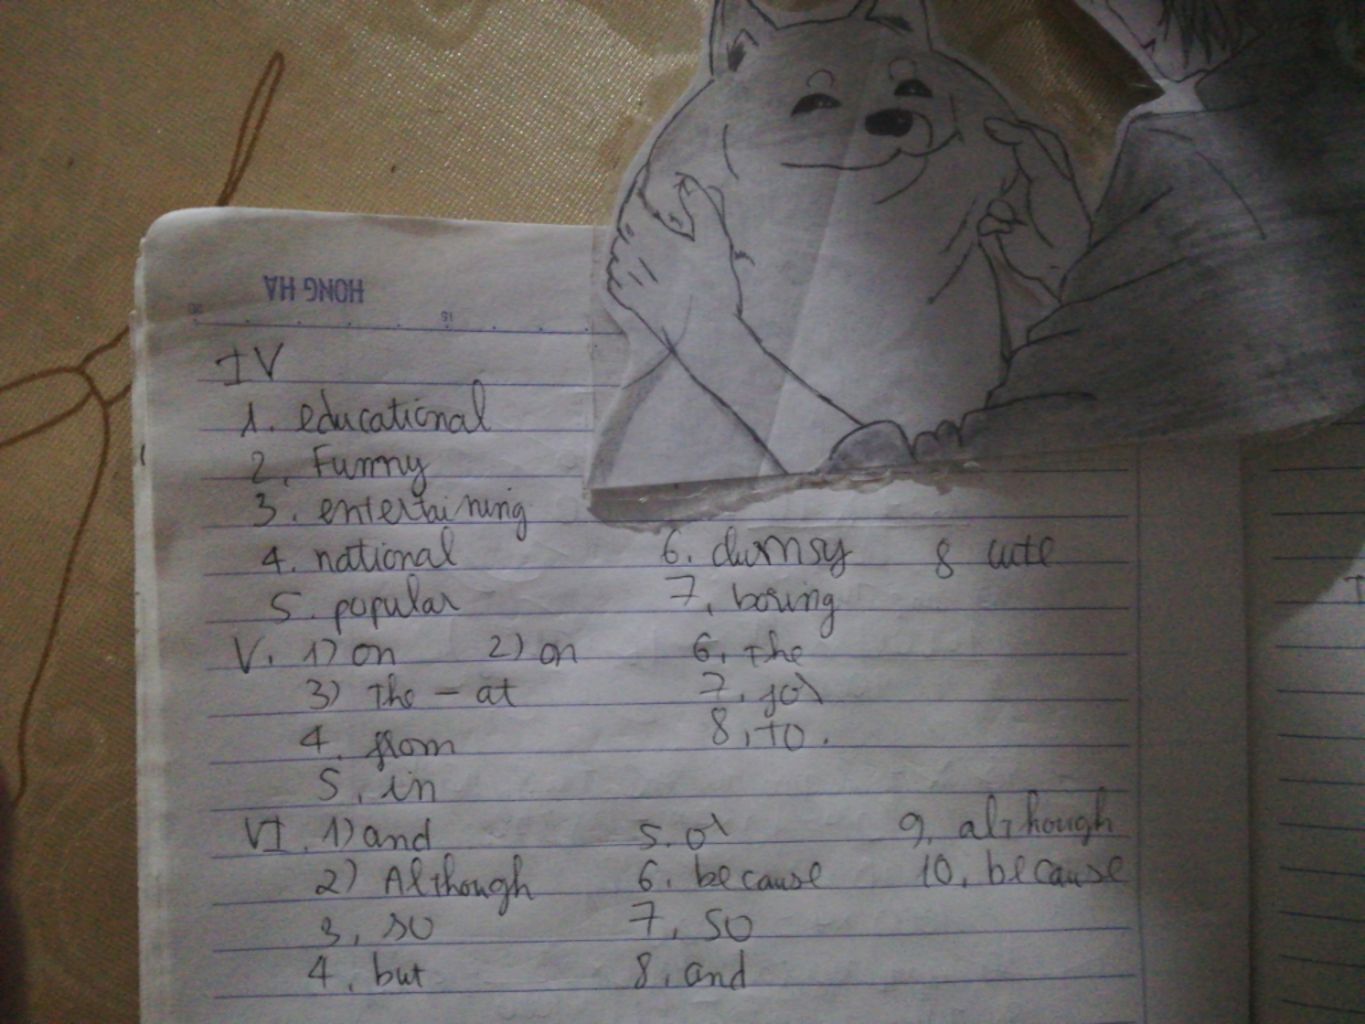 HONG HA
20 15
IV
1. educational
2. Funny
3. entertaining
4. national 6. clumsy 8 cute
5. popular 7. boring
V. 1) on 2) on 6. the
3) the - at 7. for
4. from 8. to.
5. in
VI. 1) and 5. or 9. although
2) Although 6. because 10. because
3. so 7. so
4. but 8. and